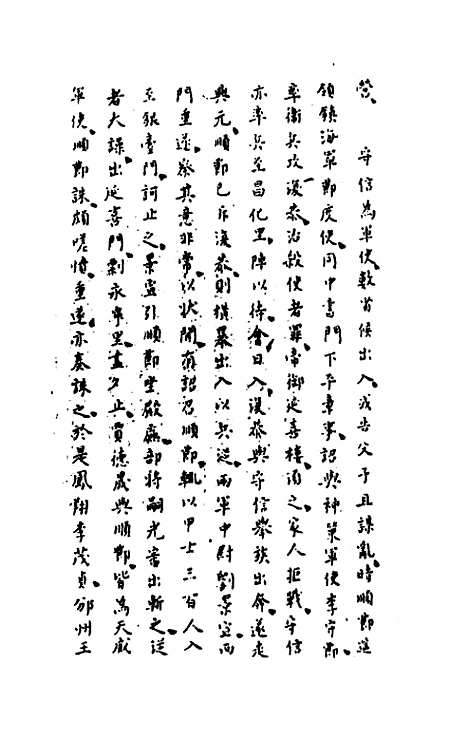 營守信為軍使數省候出入或告父子且謀亂時順節遙
領鎮海軍節度使同中書門下平章事詔與神策軍使李守節
率衛兵攻復恭治殺使者羅帝御延喜樓須之家人拒戰守信
亦率兵至昌化里陣以待會日入復恭與守信舉族出奔遂走
興元順節已斥復恭則橫暴出入以兵從兩軍中尉劉景宣西
門重遂察其意非常以狀聞有詔召順節輒以甲士三百人入
至銀臺門訶止之景宣引順節坐殿廡部將嗣光審出斬之從
者大譟出延喜門剽永寧里盡夕止賈德晟與順節皆為天威
軍使順節誅頗嗟憤重遂亦奏誅之於是鳳翔李茂貞邠州王